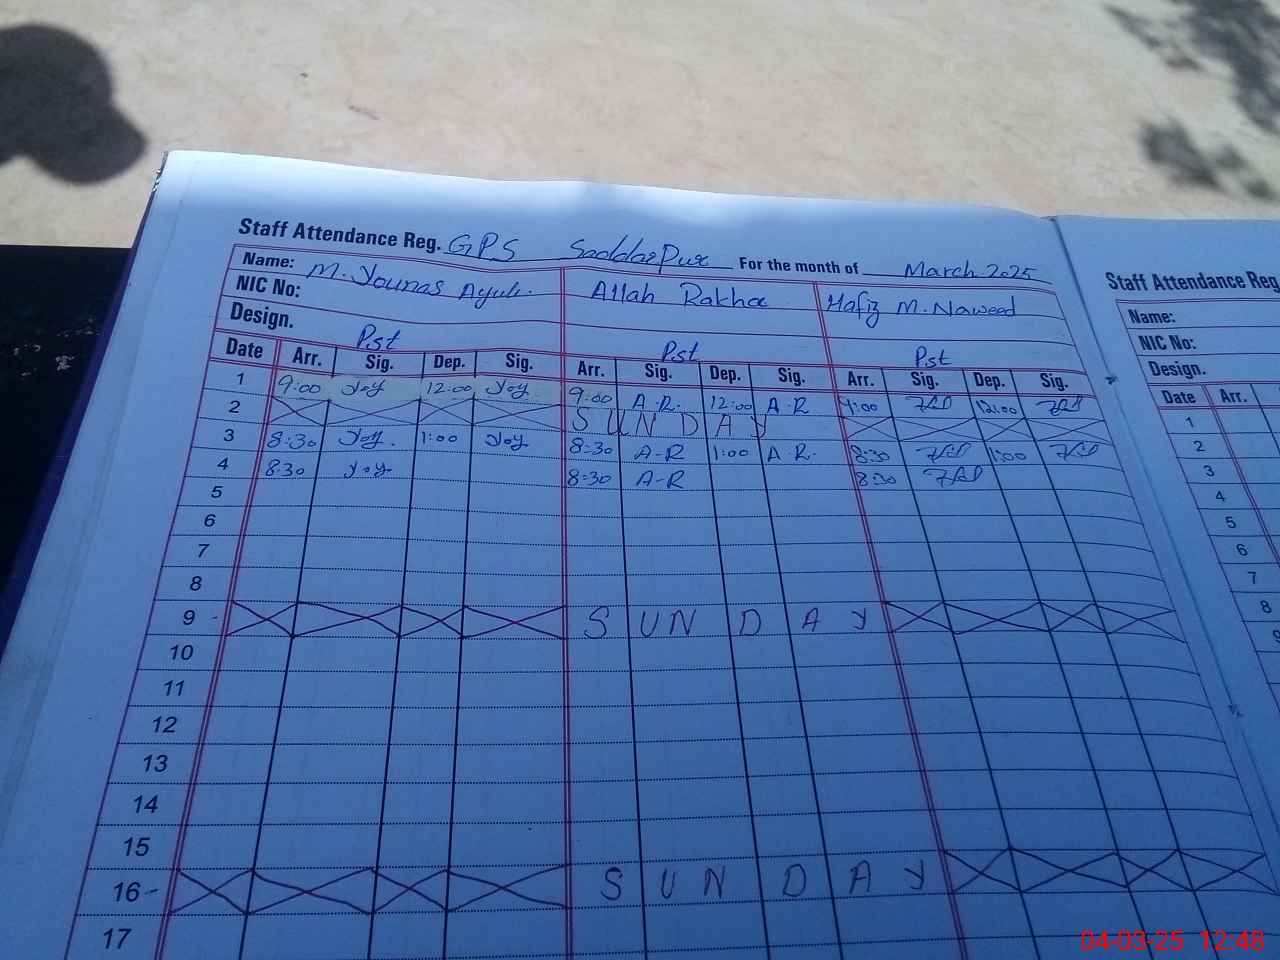 Staff Attendance Reg. GPS SaddarPur For the month of March 2025
Name: M. Younas Ayub. Allah Rakha Hafiz M. Naweed
NIC No:
Design. Pst Pst Pst
Date Arr. Sig. Dep. Sig. Arr. Sig. Dep. Sig. Arr. Sig. Dep. Sig.
1 9:00 12:00 9:00 A.R. 12:00 A.R 9:00 12:00
2 SUNDAY
3 8:30 1:00 8:30 A-R 1:00 A.R. 8:30 1:00
4 8:30 8:30 A-R 8:30
5
6
7
8
9 SUNDAY
10
11
12
13
14
15
16 SUNDAY
17
Staff Attendance Reg
Name:
NIC No:
Design.
Date Arr.
1
2
3
4
5
6
7
8
04-03-25 12:48